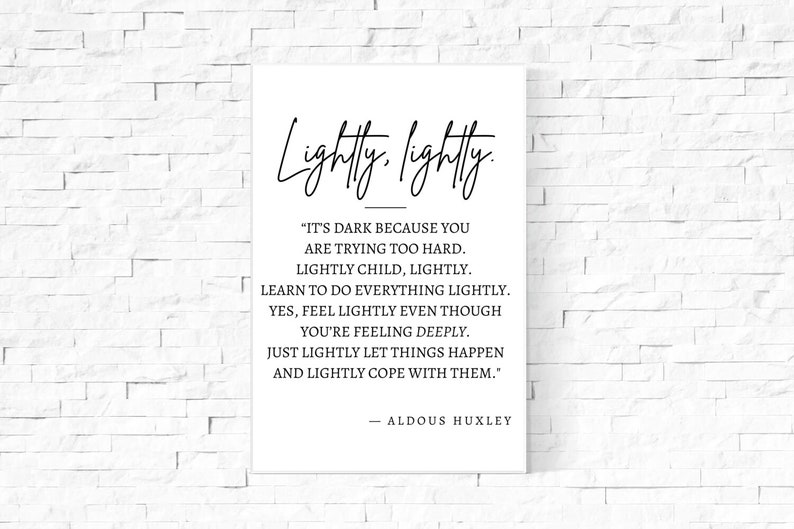 Lightly, lightly.
“IT’S DARK BECAUSE YOU
ARE TRYING TOO HARD.
LIGHTLY CHILD, LIGHTLY.
LEARN TO DO EVERYTHING LIGHTLY.
YES, FEEL LIGHTLY EVEN THOUGH
YOU’RE FEELING DEEPLY.
JUST LIGHTLY LET THINGS HAPPEN
AND LIGHTLY COPE WITH THEM."
— ALDOUS HUXLEY